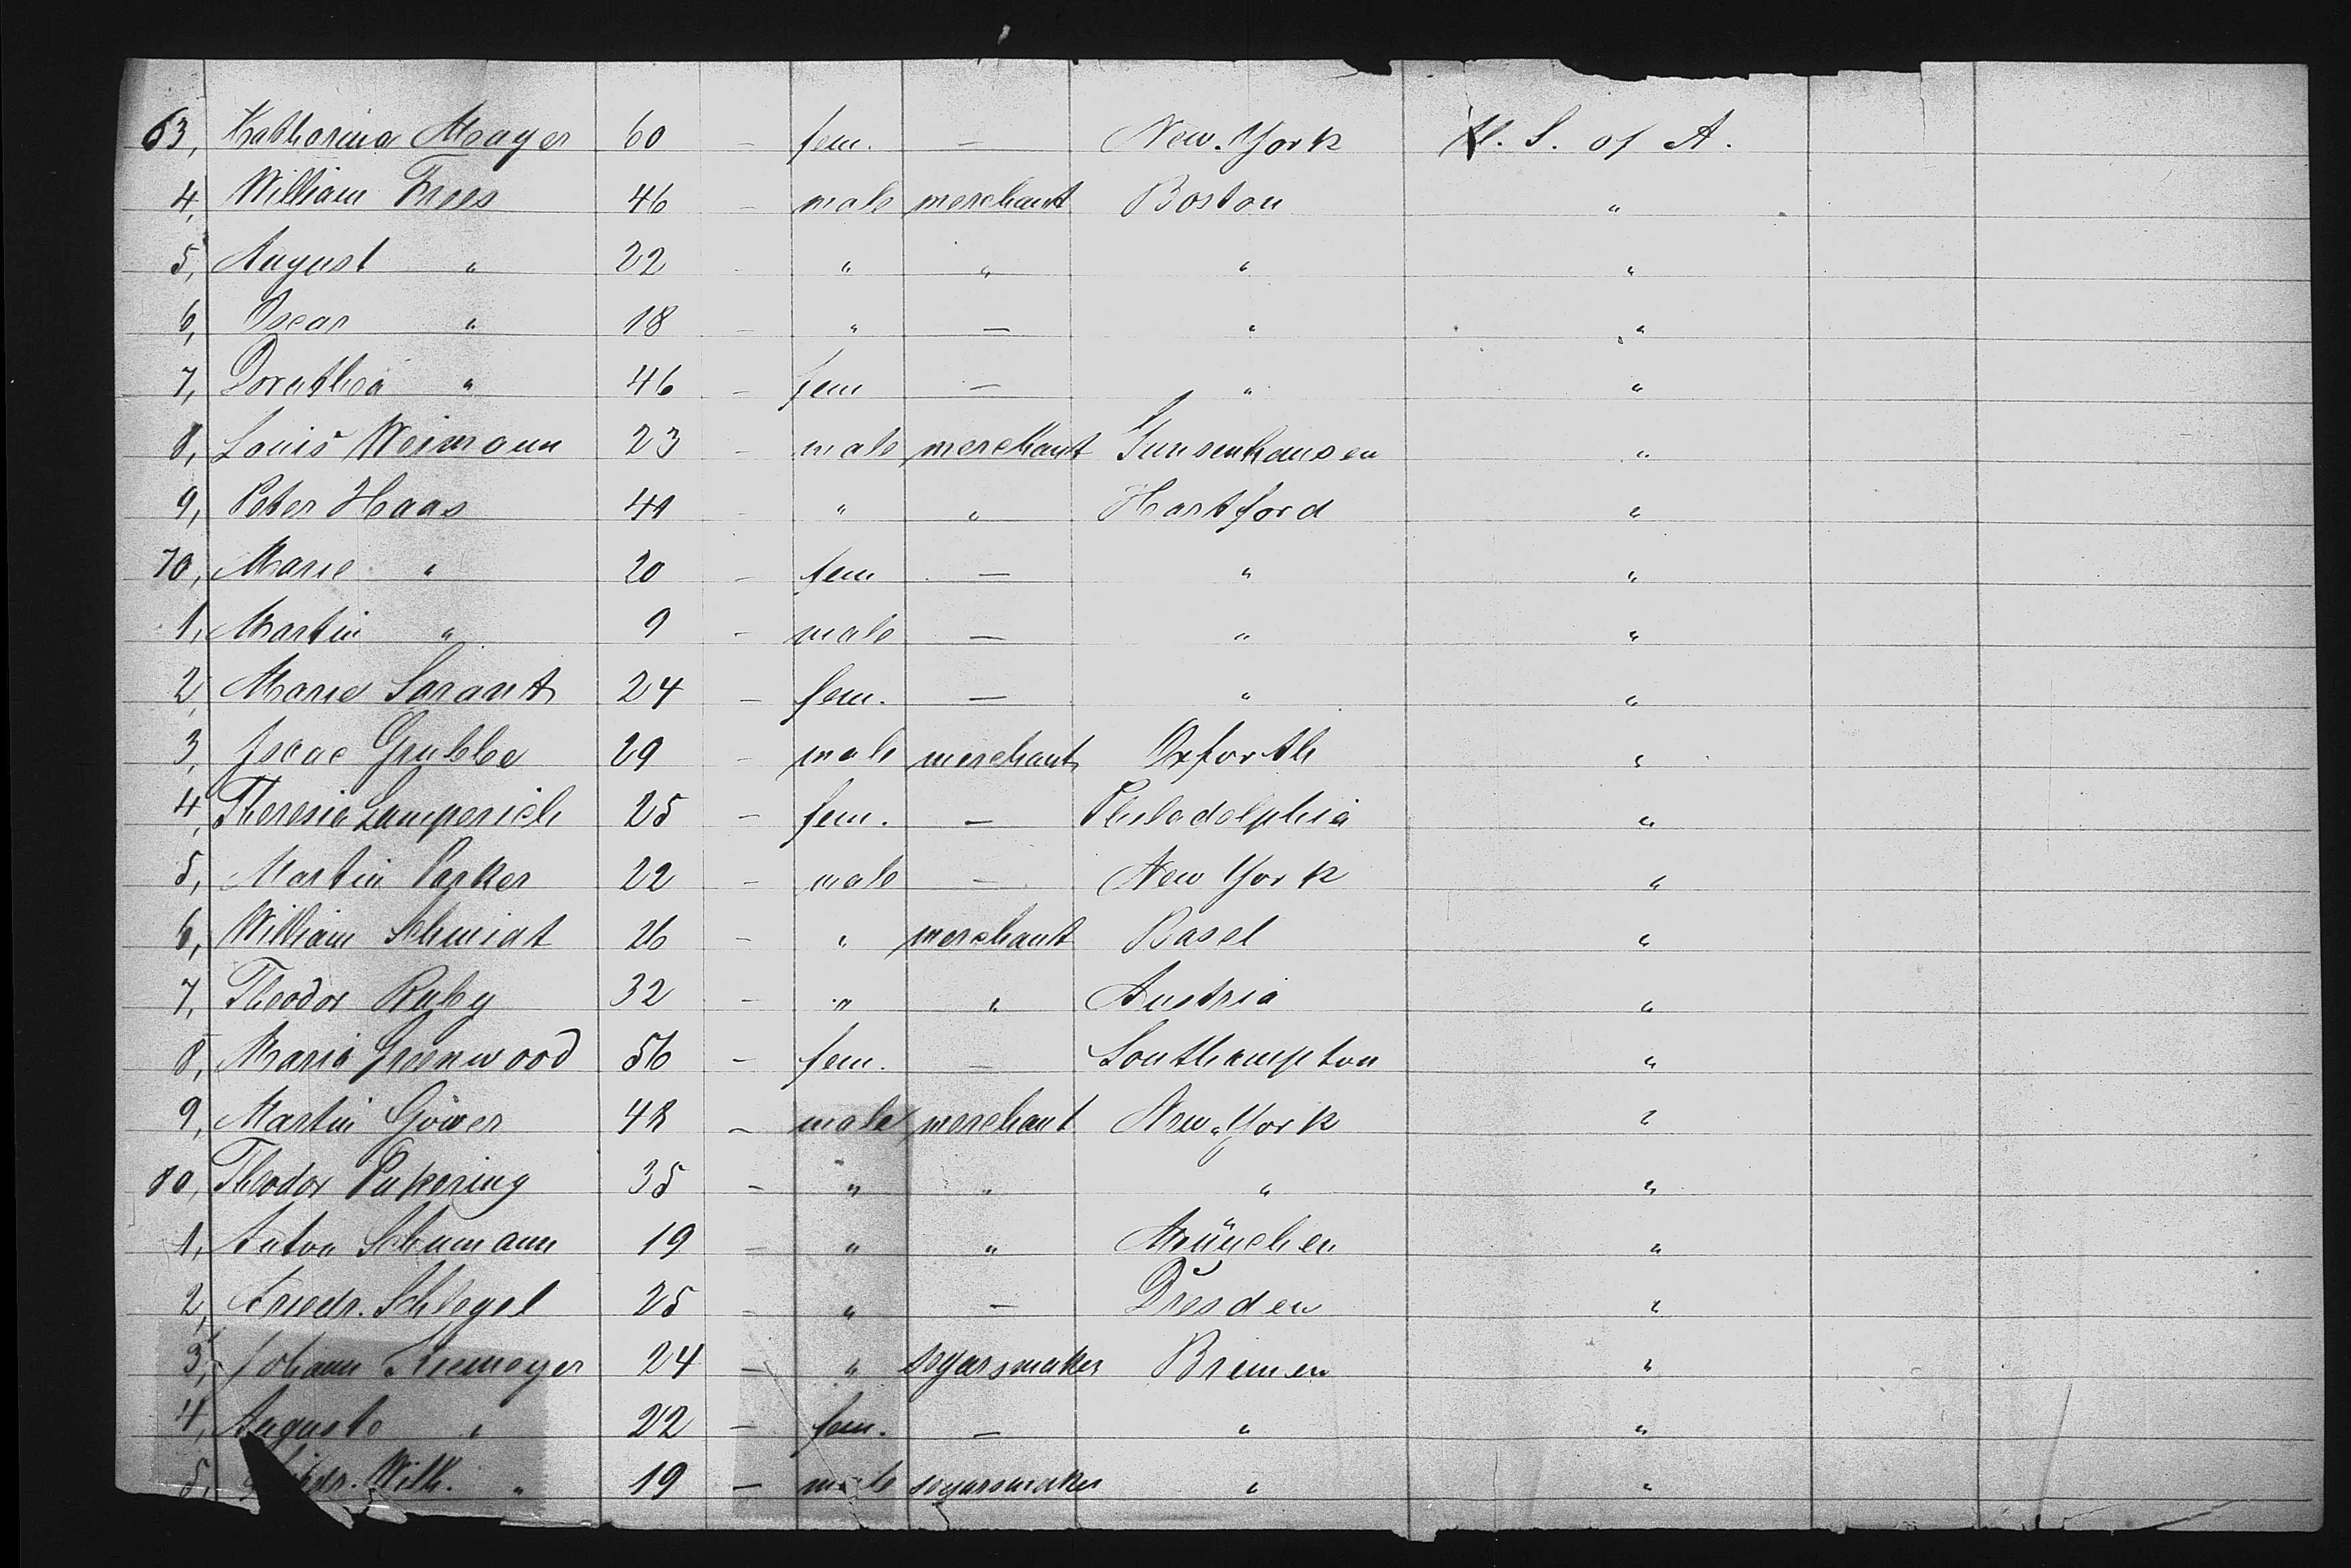 63, Katharina Mayer 60 — fem. — New-York U. S. of A.
4, William Frees 46 — male merchant Boston "
5, August " 22 - " " " "
6, Oscar " 18 — " — " "
7, Dorothea " 46 — fem — " "
8, Louis Weimann 23 - male merchant Gunsenhausen "
9, Peter Haas 41 - " " Hartford "
70, Marie " 20 — fem — " "
1, Martin " 9 - male — " "
2, Marie Sarant 24 — fem. — " "
3, Isaac Grubbe 29 - male merchant Oxforth "
4, Theresia Lamperich 25 — fem. — Philadelphia "
5, Martin Parker 22 — male — New York "
6, William Schmidt 26 — " merchant Basel "
7, Theodor Ruby 32 — " " Austria "
8, Maria Greenwood 56 — fem. — Southampton "
9, Martin Gower 48 — male merchant New-York "
80, Theodor Pukering 35 — " " " "
1, Anton Schumann 19 — " " München "
2, Friedr. Schlegel 25 — " — Dresden "
3, Johann Niemeyer 24 — " segarsmaker Bremen "
4, Auguste " 22 — fem. — " "
5, Friedr. Wilh. " 19 — male segarsmaker " "